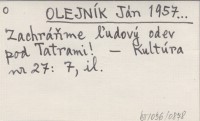 OLEJNÍK Ján 1957...
Zachráňme ľudový odev
pod Tatrami! - Kultúra
nr 27: 7, il.